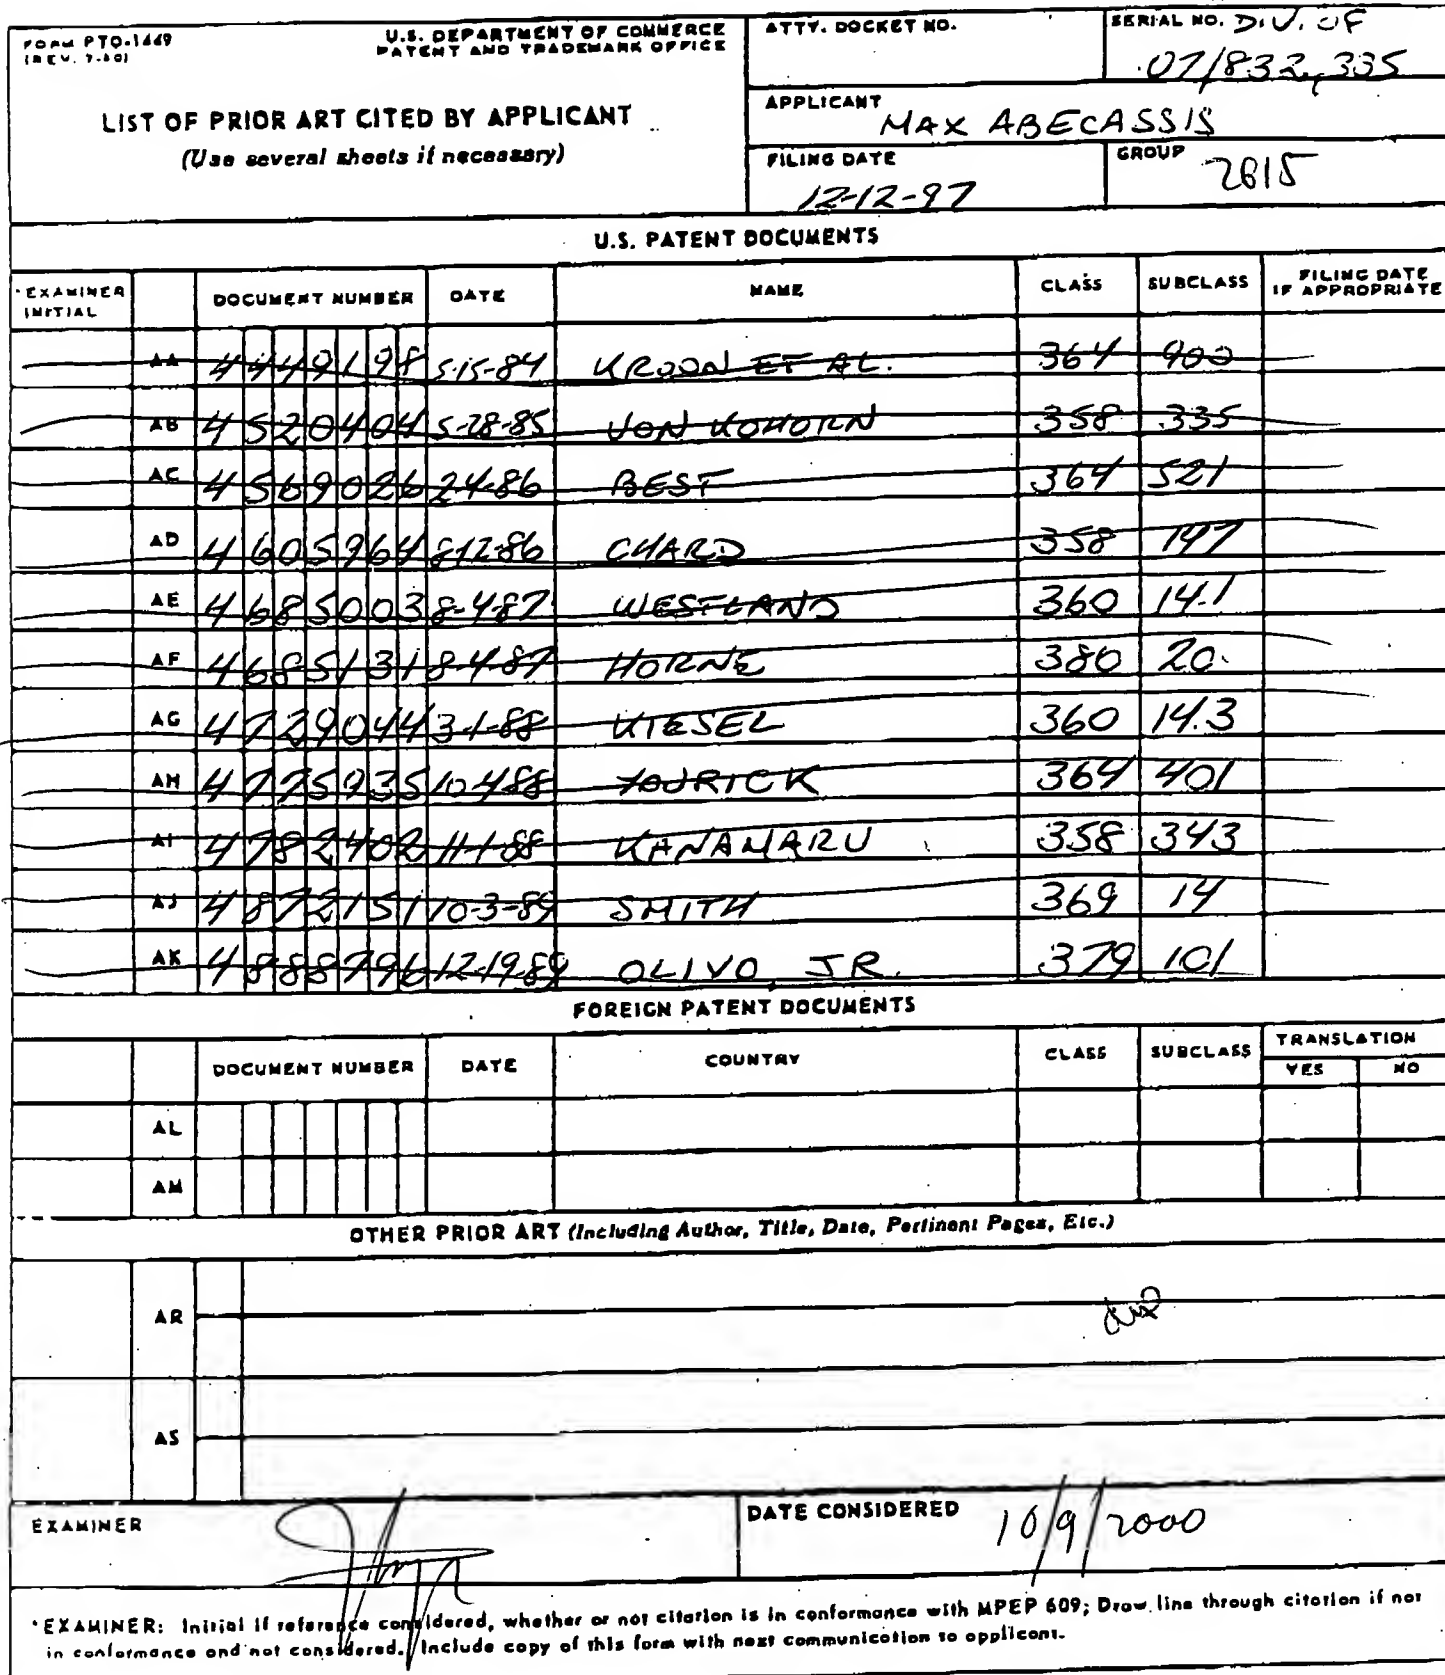 FORM PTO-1449
(REV. 7-80)
U.S. DEPARTMENT OF COMMERCE
PATENT AND TRADEMARK OFFICE
ATTY. DOCKET NO.
SERIAL NO. DIV. OF
07/832,335
LIST OF PRIOR ART CITED BY APPLICANT
(Use several sheets if necessary)
APPLICANT
MAX ABECASSIS
FILING DATE
12-12-97
GROUP
2615
U.S. PATENT DOCUMENTS
*EXAMINER INITIAL DOCUMENT NUMBER DATE NAME CLASS SUBCLASS FILING DATE IF APPROPRIATE
AA 4449198 5-15-84 KROON ET AL. 364 900
AB 4520404 5-28-85 VON KOHORN 358 335
AC 4569026 2-4-86 BEST 364 521
AD 4605964 8-12-86 CHARD 358 147
AE 4685003 8-4-87 WESTLAND 360 14.1
AF 4685131 8-4-87 HORNE 380 20
AG 4729044 3-1-88 KIESEL 360 14.3
AH 4775935 10-4-88 YOURICK 364 401
AI 4782402 11-1-88 KANAMARU 358 343
AJ 4872151 10-3-89 SMITH 369 14
AK 4888796 12-19-89 OLIVO, JR. 379 101
FOREIGN PATENT DOCUMENTS
DOCUMENT NUMBER DATE COUNTRY CLASS SUBCLASS TRANSLATION
YES NO
AL
AM
OTHER PRIOR ART (Including Author, Title, Date, Pertinent Pages, Etc.)
AR
AS
EXAMINER
DATE CONSIDERED 10/9/2000
*EXAMINER: Initial if reference considered, whether or not citation is in conformance with MPEP 609; Draw line through citation if not
in conformance and not considered. Include copy of this form with next communication to applicant.